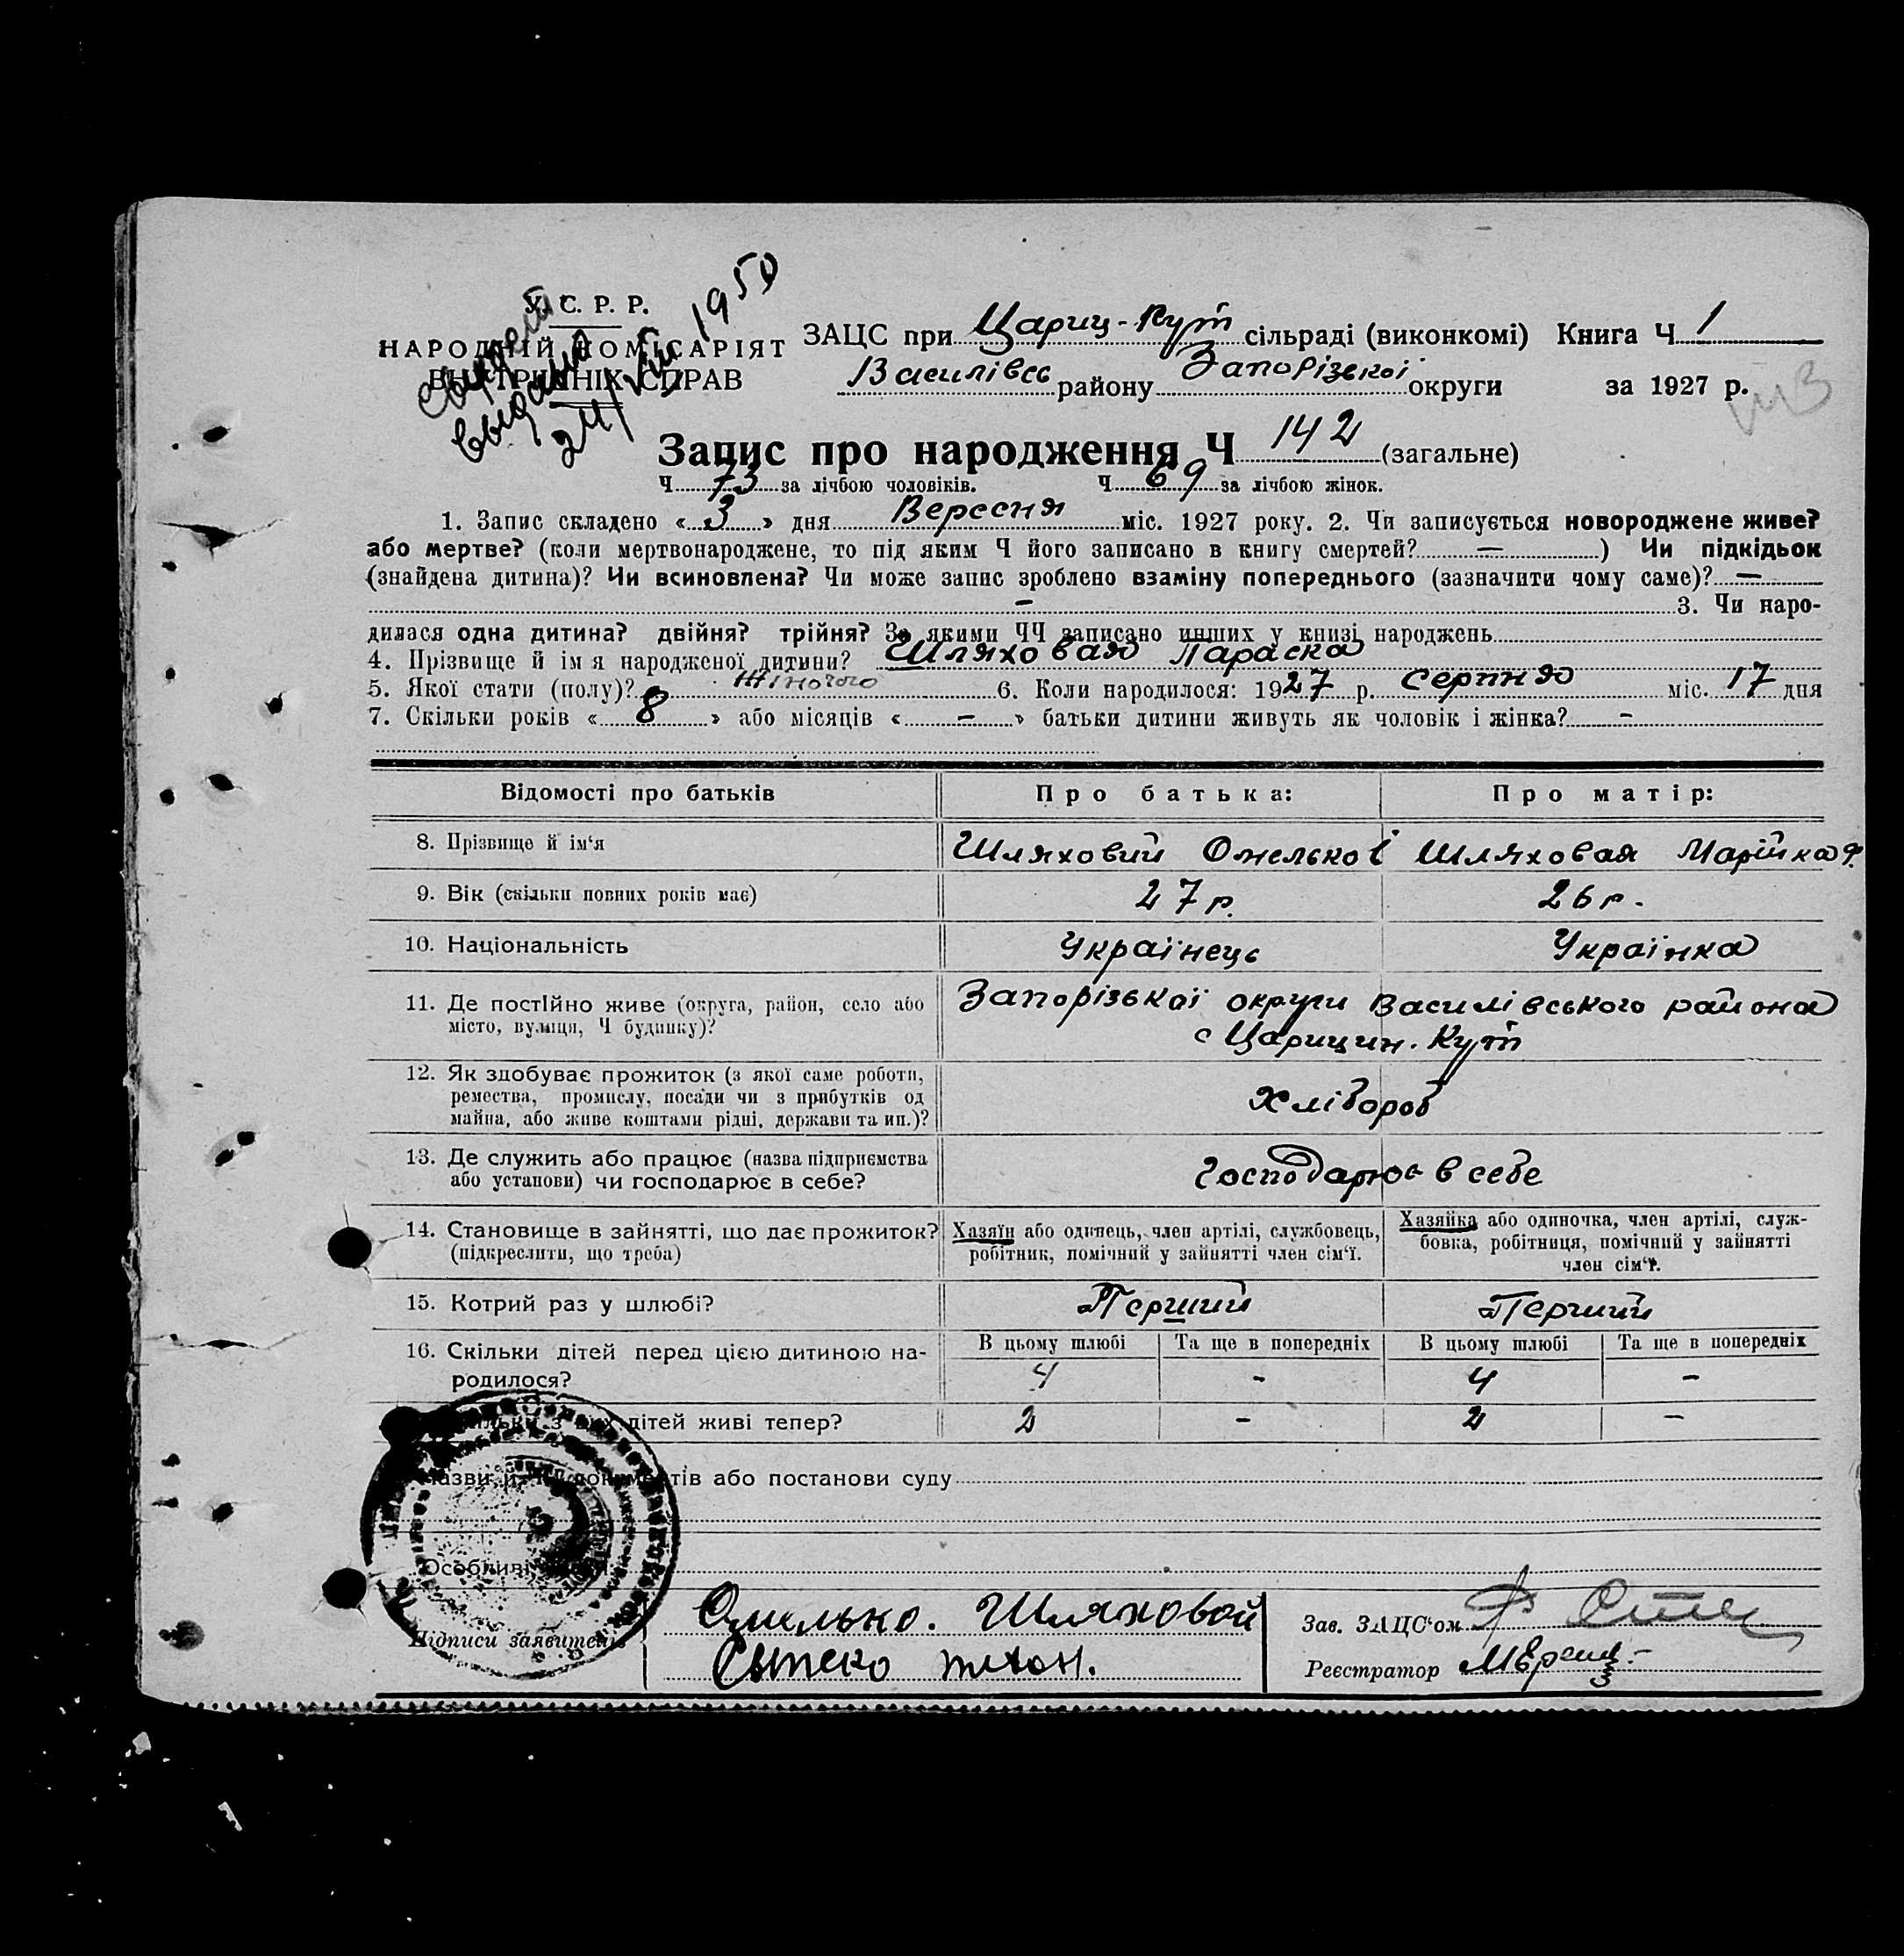 У. С. Р. Р.
НАРОДНІЙ КОМІСАРІЯТ
ВНУТРІШНІХ СПРАВ
выдано
24/VIII 1950
ЗАЦС при Цариц-Кут сільраді (виконкомі) Книга Ч 1
Василівсь району Запорізької округи за 1927 р.
Запис про народження Ч 142 (загальне)
Ч 73 за лічбою чоловіків. Ч 69 за лічбою жінок.
1. Запис складено « 3 » дня Вересня міс. 1927 року. 2. Чи записується новороджене живе?
або мертве? (коли мертвонароджене, то під яким Ч його записано в книгу смертей? — ) Чи підкідьок
(знайдена дитина)? Чи всиновлена? Чи може запис зроблено взаміну попереднього (зазначити чому саме)? —
– 3. Чи наро-
дилася одна дитина? двійня? трійня? За якими ЧЧ записано инших у книзі народжень
4. Прізвище й ім я народженої дитини? Шляховая Параска
5. Якої стати (полу)? Жіночого 6. Коли народилося: 1927 р. Серпня міс. 17 дня
7. Скільки років « 8 » або місяців « – » батьки дитини живуть як чоловік і жінка? –
Відомості про батьків Про батька: Про матір:
8. Прізвище й ім‘я Шляховий Омелько Шляховая Марійка
9. Вік (скільки повних років має) 27 р. 26 р.
10. Національність Українець Українка
11. Де постійно живе (округа, район, село або Запорізької округи Василівського района
місто, вулиця, Ч будинку)? с Царицин. Кут
12. Як здобуває прожиток (з якої саме роботи,
ремества, промислу, посади чи з прибутків од
майна, або живе коштами рідні, держави та ин.)? Хлібороб
13. Де служить або працює (назва підприємства
або установи) чи господарює в себе? Господарює в себе
14. Становище в зайнятті, що дає прожиток? Хазяїн або одинець, член артілі, службовець, Хазяйка або одиночка, член артілі, служ-
(підкреслити, що треба) робітник, помічний у зайнятті член сім‘ї. бовка, робітниця, помічний у зайнятті
член сім‘ї.
15. Котрий раз у шлюбі? Перший Перший
16. Скільки дітей перед цією дитиною на- В цьому шлюбі Та ще в попередніх В цьому шлюбі Та ще в попередніх
родилося? 4 – 4 –
дітей живі тепер? 2 – 2 –
Назви й документів або постанови суду
Особливі
Підписи заявителів Омилько. Шляховой Зав. ЗАЦС‘ом
Реєстратор